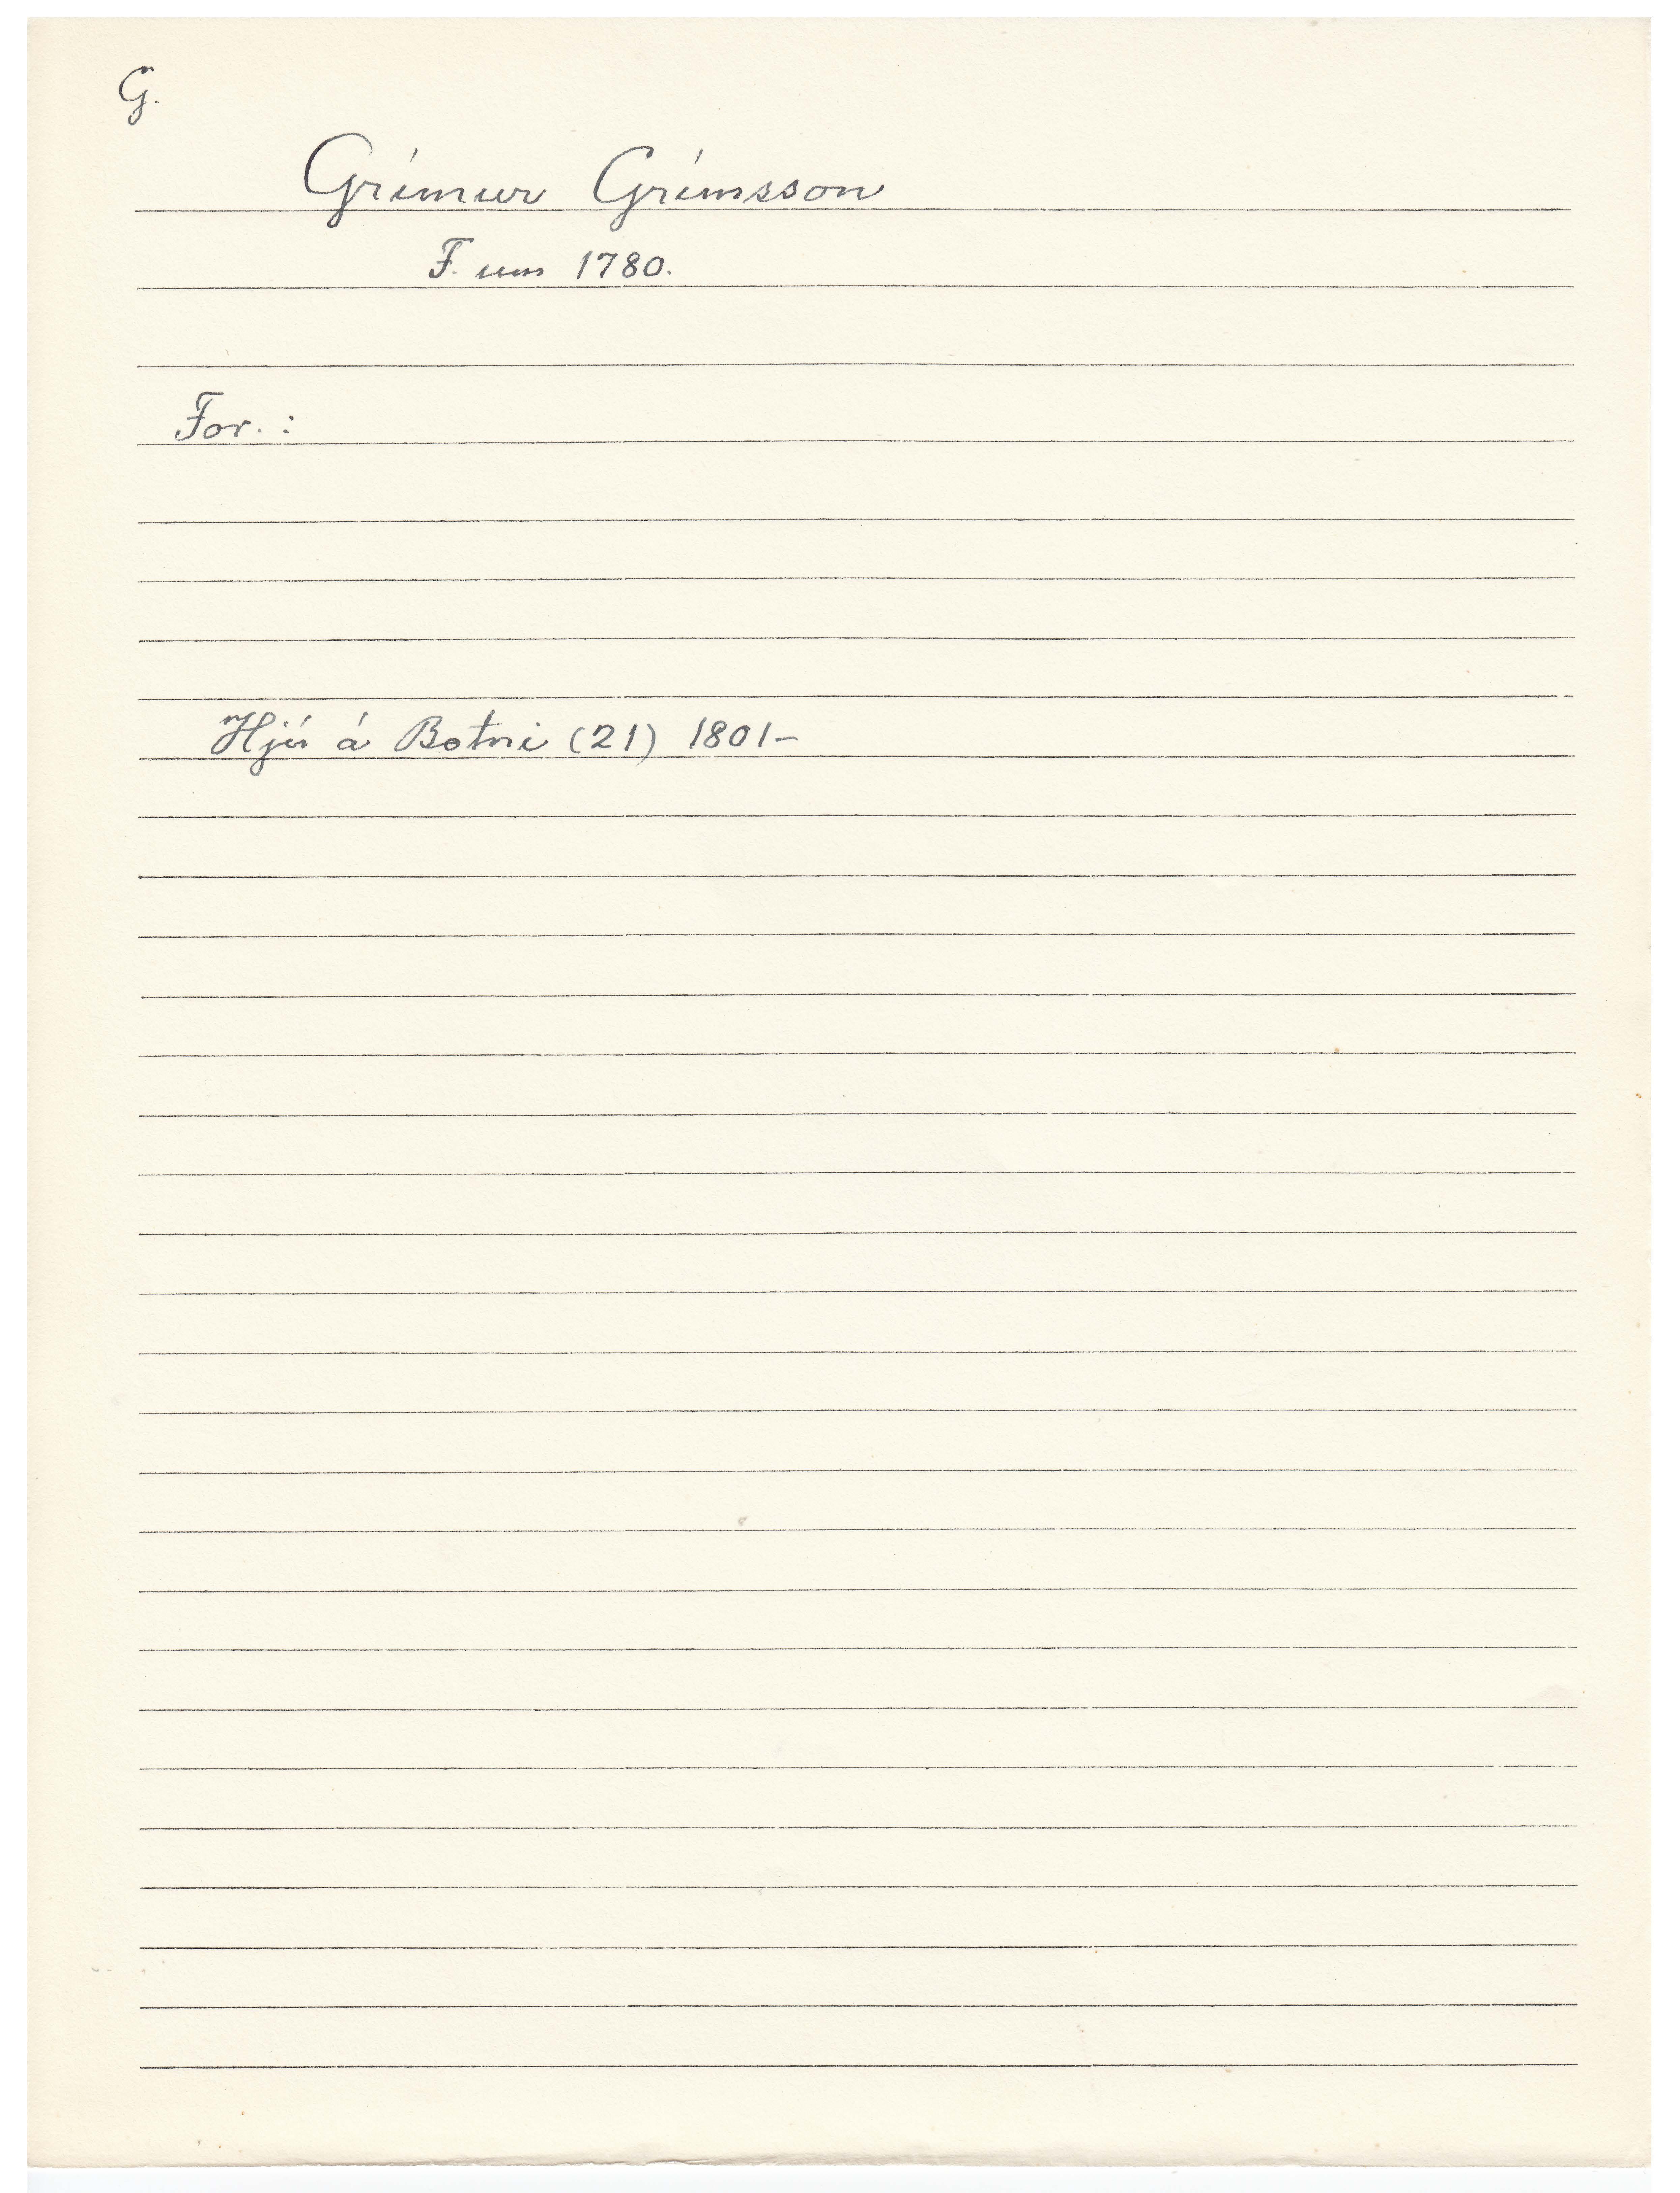 G.
Grímur Grímsson
F. um 1780.
For. :
Hjú á Botni (21) 1801-